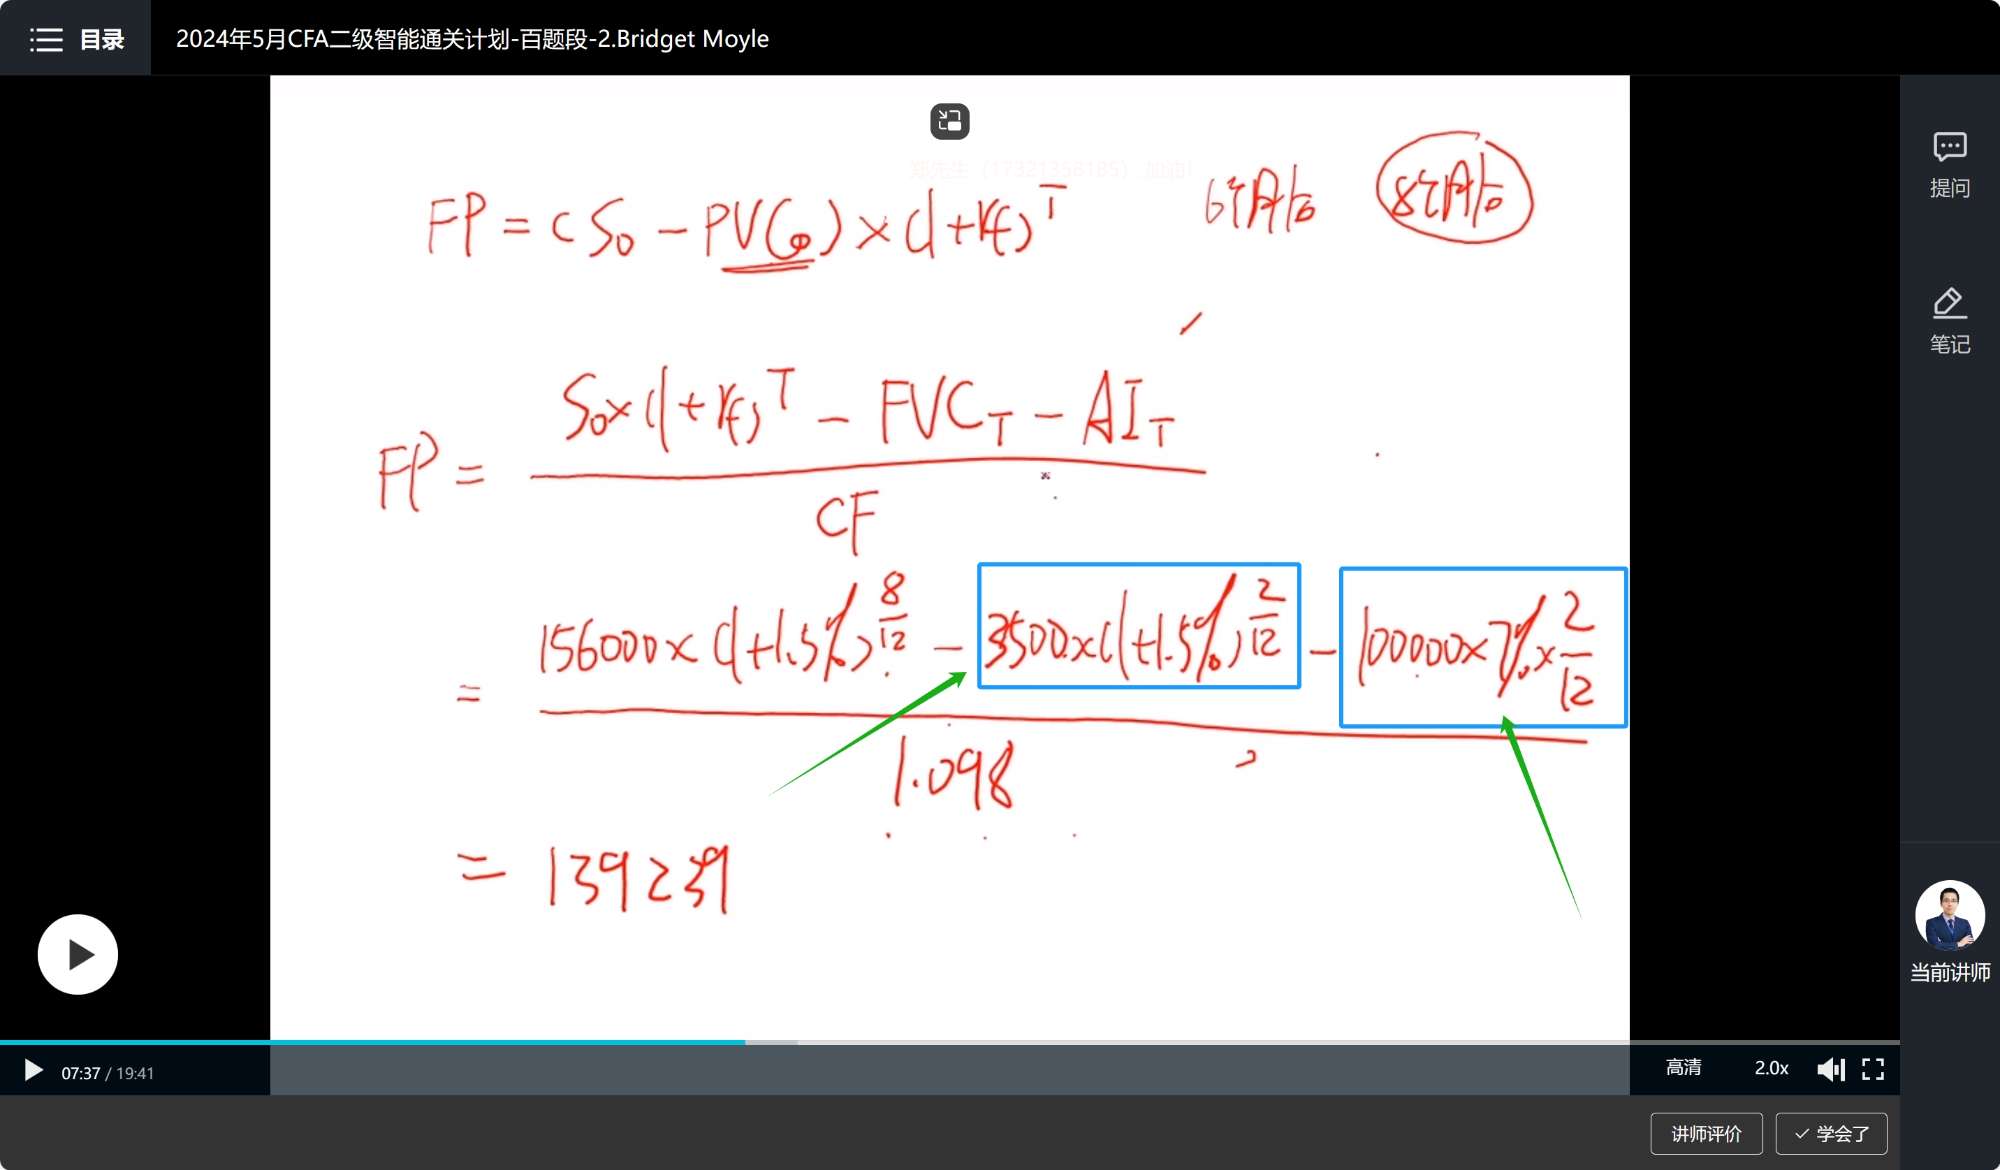 目录 2024年5月CFA二级智能通关计划-百题段-2.Bridget Moyle
提问
笔记
郑先生（17321358185），加油！
FP = (S₀ - PVC₀) × (1+rf)ᵀ 6个月后 8个月后
FP = S₀×(1+rf)ᵀ - FVC_T - AI_T
CF
= 156000×(1+1.5%)^8/12 - 3500×(1+1.5%)^2/12 - 100000×7%×2/12
1.098
= 139239
当前讲师
07:37 / 19:41 高清 2.0x
讲师评价 学会了